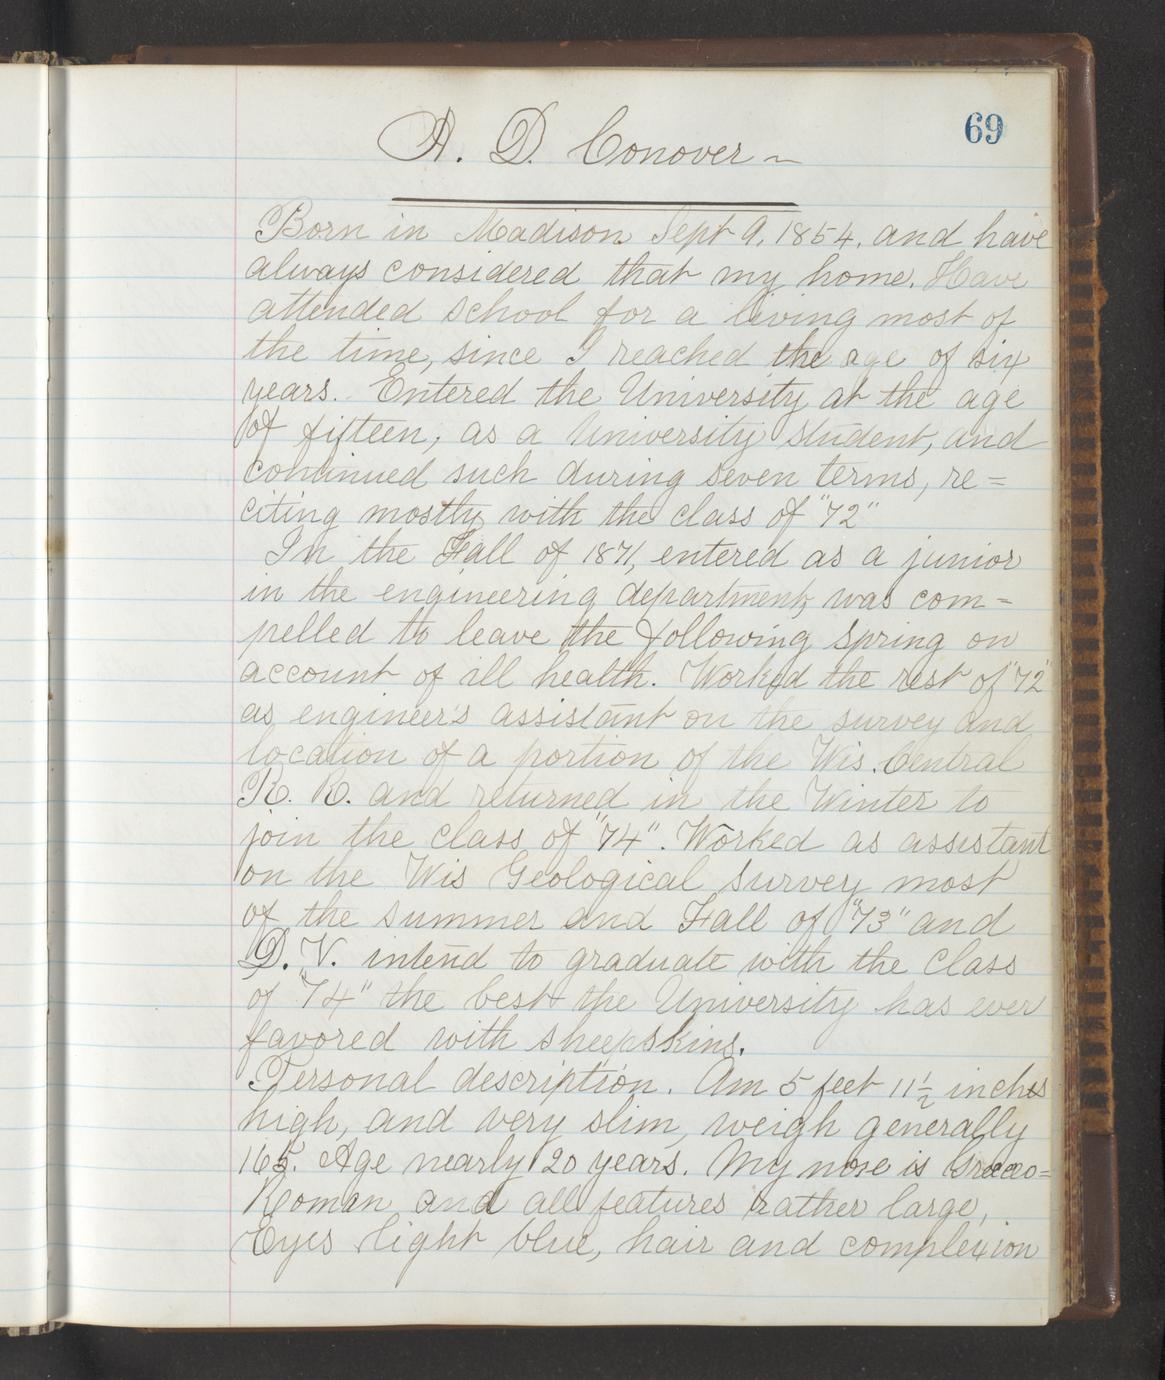 69
A. D. Conover ~
Born in Madison Sept 9, 1854, and have
always considered that my home. Have
attended school for a living most of
the time, since I reached the age of six
years. Entered the University at the age
of fifteen, as a University student, and
continued such during seven terms, re=
citing mostly with the class of "72"
In the Fall of 1871, entered as a junior
in the engineering department, was com=
pelled to leave the following spring on
account of ill health. Worked the rest of "72"
as engineer's assistant on the survey and
location of a portion of the Wis. Central
R. R. and returned in the Winter to
join the class of "74". Worked as assistant
on the Wis Geological Survey most
of the summer and Fall of "73" and
D. V. intend to graduate with the class
of "74" the best the University has ever
favored with sheepskins.
Personal description. Am 5 feet 11½ inches
high, and very slim, weigh generally
165. Age nearly 20 years. My nose is Graeco=
Roman and all features rather large,
Eyes light blue, hair and complexion